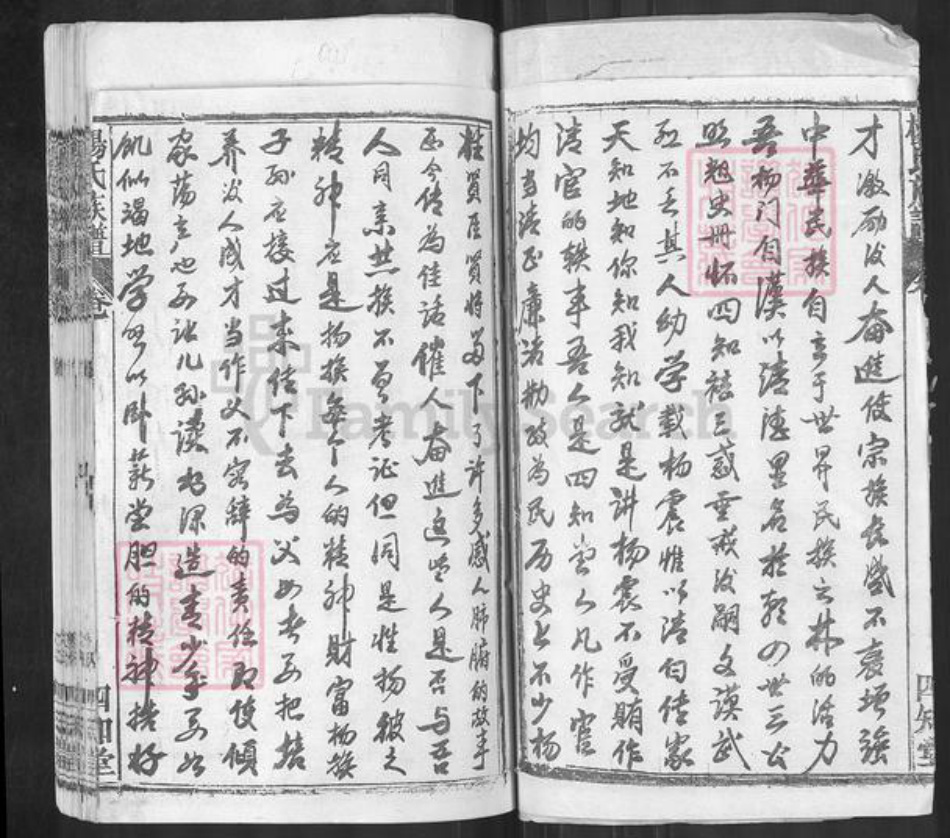 才激励后人奋进使宗族长盛不衰增强
中华民族自立于世界民族之林的活力
吾杨门自汉以清德墨名於朝四世三公
照魁史册怀四知祛三惑垂戒后嗣文谟武
烈不乏其人幼学载杨震惟以清白传家
天知地知你知我知就是讲杨震不受贿作
清官的轶事吾人是四知堂人凡作官
均当清正廉洁勤政为民历史上不少杨
姓贤臣贤将留下了许多感人肺腑的故事
至今传为佳话催人奋进这些人是否与吾
人同亲共族不曾考证但同是姓杨彼之
精神应是杨族每个人的精神财富杨族
子孙应接过来传下去为父母者要把培
养后人成才当作义不容辞的责任即使倾
家荡产也要让儿孙读书深造青少年要如
饥似渴地学习以卧薪尝胆的精神搞好
楊氏族譜
四知堂
FamilySearch